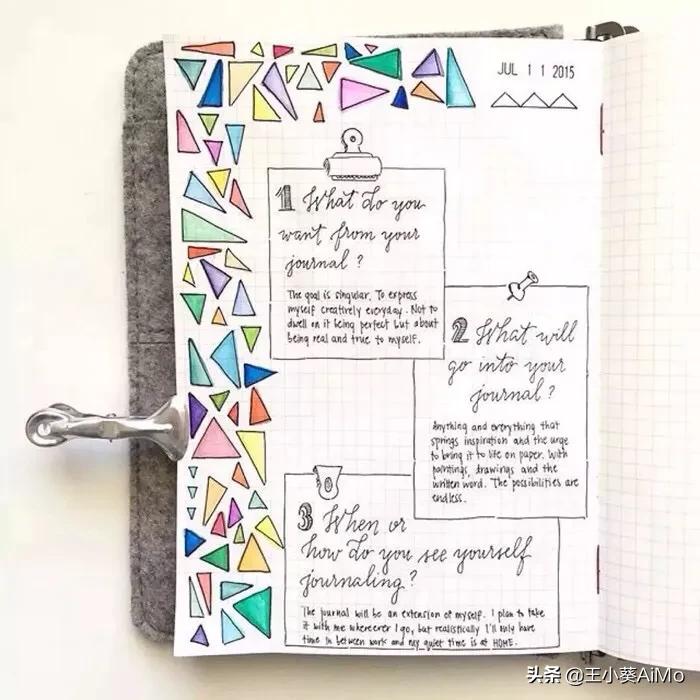 JUL 11 2015
1 What do you
want from your
journal?
The goal is singular. To express
myself creatively everyday. Not to
dwell on it being perfect but about
being real and true to myself.
2 What will
go into your
journal?
Anything and everything that
springs inspiration and the urge
to bring it to life on paper. With
paintings, drawings and the
written word. The possibilities are
endless.
3 When or
how do you see yourself
journaling?
The journal will be an extension of myself. I plan to take
it with me wherever I go, but realistically I'll only have
time in between work and my quiet time is at HOME.
头条 @王小葵AiMo